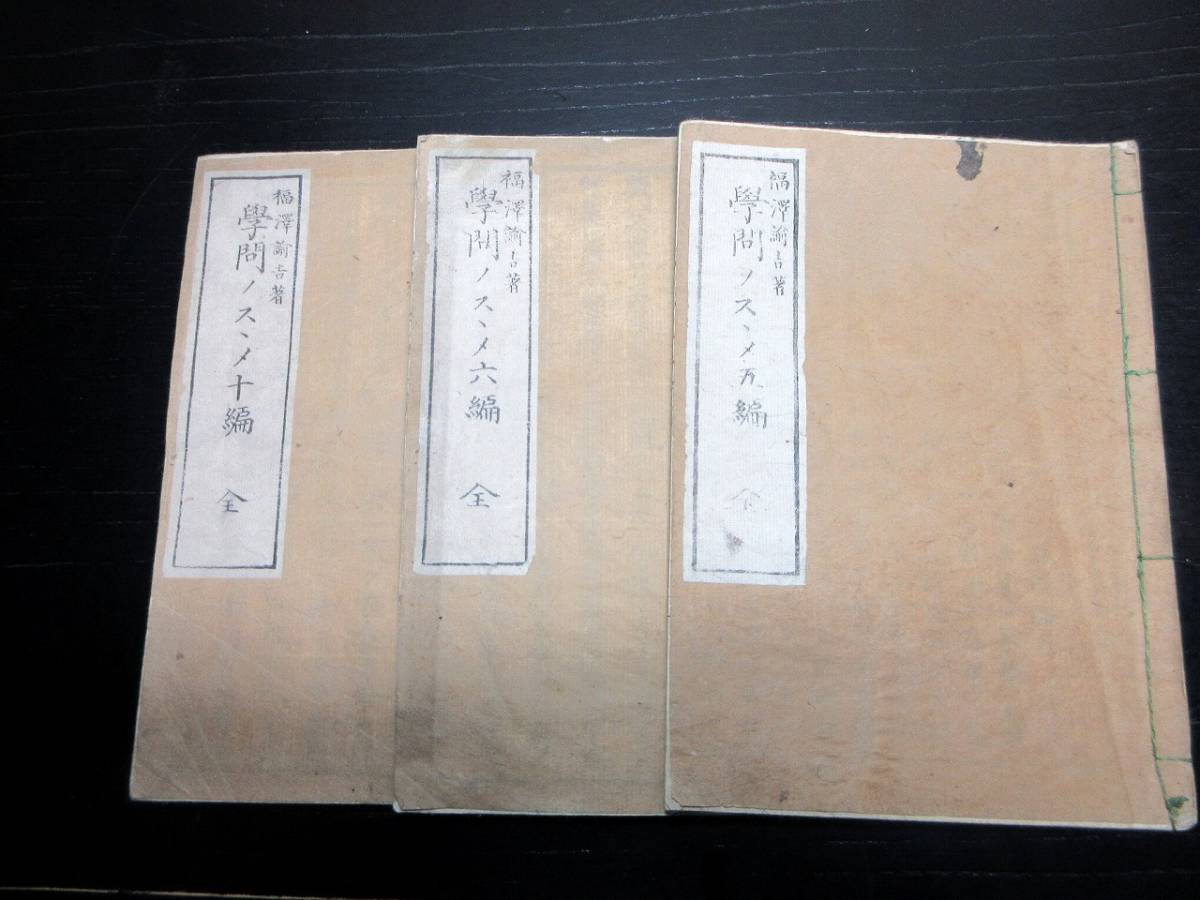 福澤諭吉著
學問ノスヽメ五編
全
福澤諭吉著
學問ノスヽメ六編
全
福澤諭吉著
學問ノスヽメ十編
全